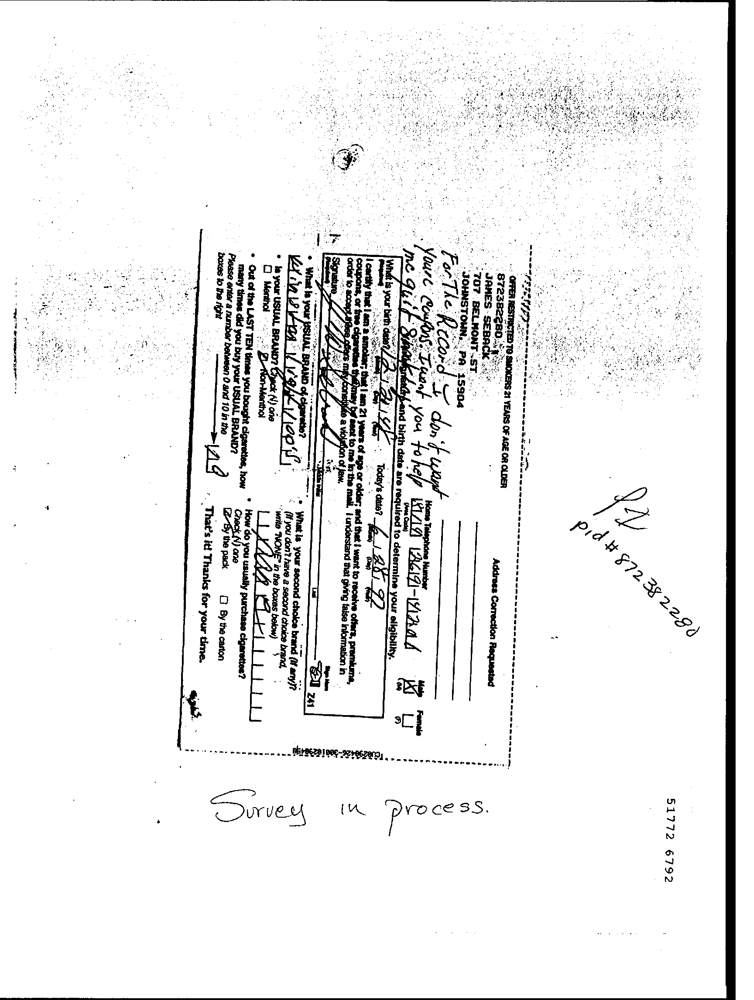 OFFER RESTRICTED TO SMOKERS 21 YEARS OF AGE OR OLDER
872382280
JAMES SEBACK
707 BELMONT ST
JOHNSTOWN, PA 15904
Address Correction Requested
For The Record I don't want
Your Coupons I want you to help
me quit
Home Telephone Number
(Area Code)
Male
(M)
Female
(F)
and birth date are required to determine your eligibility.
What is your birth date?
(Required)
Today's date? 6 28 97
I certify that I am a smoker; that I am 21 years of age or older; and that I want to receive offers, premiums,
coupons, or free cigarettes that may be sent to me in the mail. I understand that giving false information in
order to accept these offers may constitute a violation of law.
Signature
(Required)
Z41
• What is your USUAL BRAND of cigarette?
• Is your USUAL BRAND? Check (√) one
Menthol
Non-Menthol
• Out of the LAST TEN times you bought cigarettes, how
many times did you buy your USUAL BRAND?
Please enter a number between 0 and 10 in the
boxes to the right
• What is your second choice brand (if any)?
(If you don't have a second choice brand,
write "NONE" in the boxes below)
• How do you usually purchase cigarettes?
Check (√) one
By the pack
By the carton
That's it! Thanks for your time.
pid # 872382280
Survey in process.
51772 6792